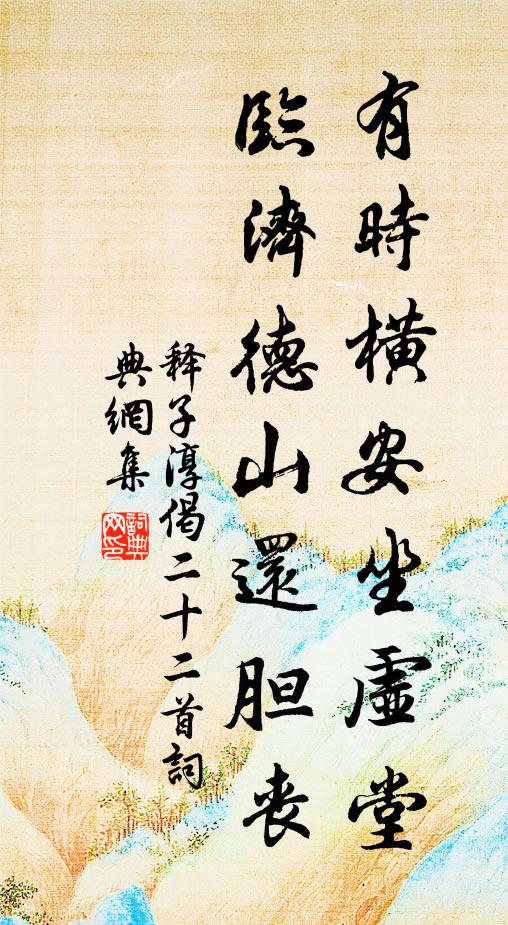 有時橫安坐虛堂
臨濟德山還胆喪
释子淳偈二十二首詞
典網集
詞典
网印